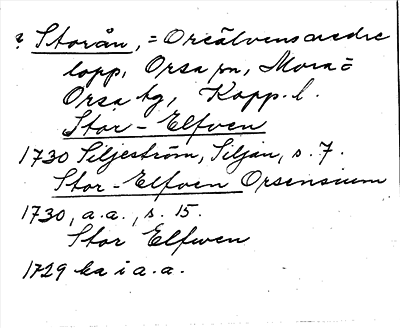 ? Storån, = Oreälvens nedre
lopp, Orsa sn, Mora =
Orsa tg, Kopp. l.
Stor - Elfven
1730 Siljeström, Siljan, s. 7.
Stor - Elfven Orsensium
1730, a.a., s. 15.
Stor Elfwen
1729 ka i a.a.